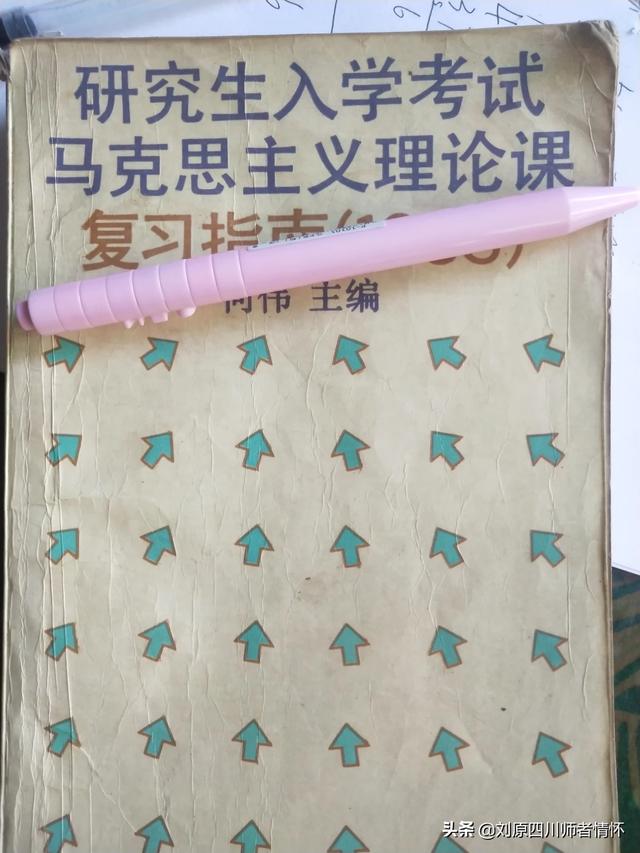 研究生入学考试
马克思主义理论课
复习指南
主编
头条 @刘原四川师者情怀